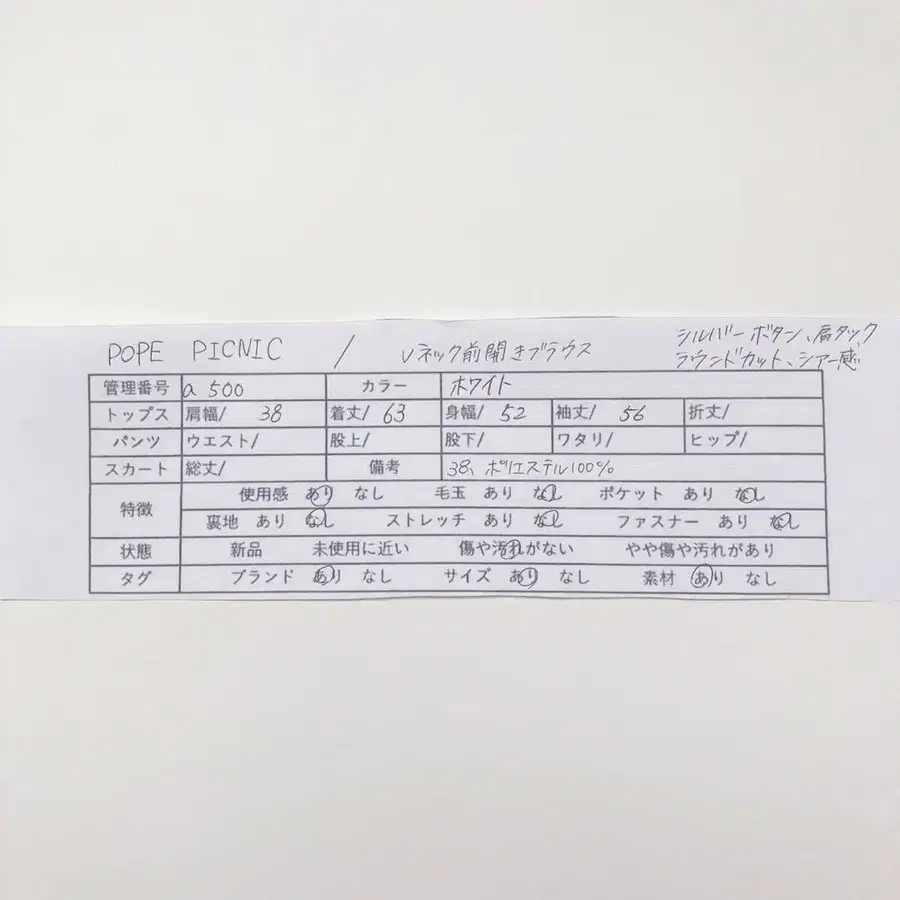 POPE PICNIC / Vネック前開きブラウス シルバーボタン、肩タック
ラウンドカット、シアー感
管理番号 a 500 カラー ホワイト
トップス 肩幅/ 38 着丈/ 63 身幅/ 52 袖丈/ 56 折丈/
パンツ ウエスト/ 股上/ 股下/ ワタリ/ ヒップ/
スカート 総丈/ 備考 38、ポリエステル100%
特徴 使用感 あり なし 毛玉 あり なし ポケット あり なし
裏地 あり なし ストレッチ あり なし ファスナー あり なし
状態 新品 未使用に近い 傷や汚れがない やや傷や汚れがあり
タグ ブランド あり なし サイズ あり なし 素材 あり なし